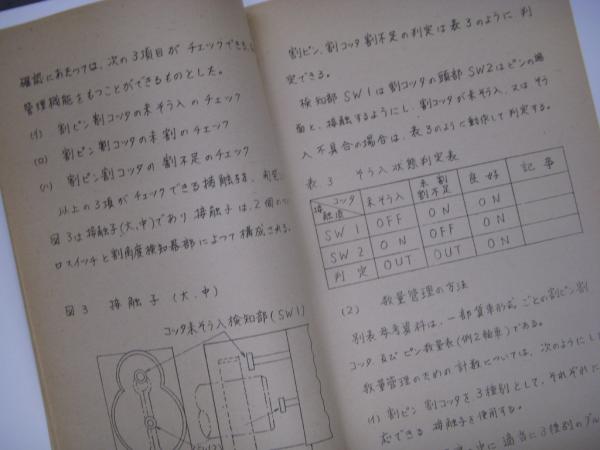 確認にあたっては、次の3項目が チェックできる
管理機能をもつことができるものとした。
(イ) 割ピン割コッタの未そう入 のチェック
(ロ) 割ピン割コッタの未割のチェック
(ハ) 割ピン割コッタの 割不足のチェック
以上の3項がチェックできる接触子を、
図3は接触子(大、中)であり 接触子は、2個の
ロスイッチと割角度検知器部によって構成される。
図3 接触子 (大、中)
コッタ未そう入検知部(SW1)
割ピン、割コッタ 割不足の判定は表3のように、判
定できる。
検知部SW1は割コッタの頭部SW2はピンの端
面と、接触するようにし、割コッタが未そう入、又はそう
入不具合の場合は、表3のように動作して判定する。
表 3 そう入状態判定表
接触道 コッタ 未そう入 未割割不足 良好 記事
SW 1 OFF ON ON
SW 2 ON OFF ON
判定 OUT OUT ON
(2) 数量管理の方法
別表参考資料は、一部貨車形式ごとの割ピン割
コッタ、及びピン数量表(例2軸車)である。
数量管理のための計数については、次のように
(イ) 割ピン割コッタを3種別として、それぞれに
応できる 接触子を使用する。
適当に3種別の